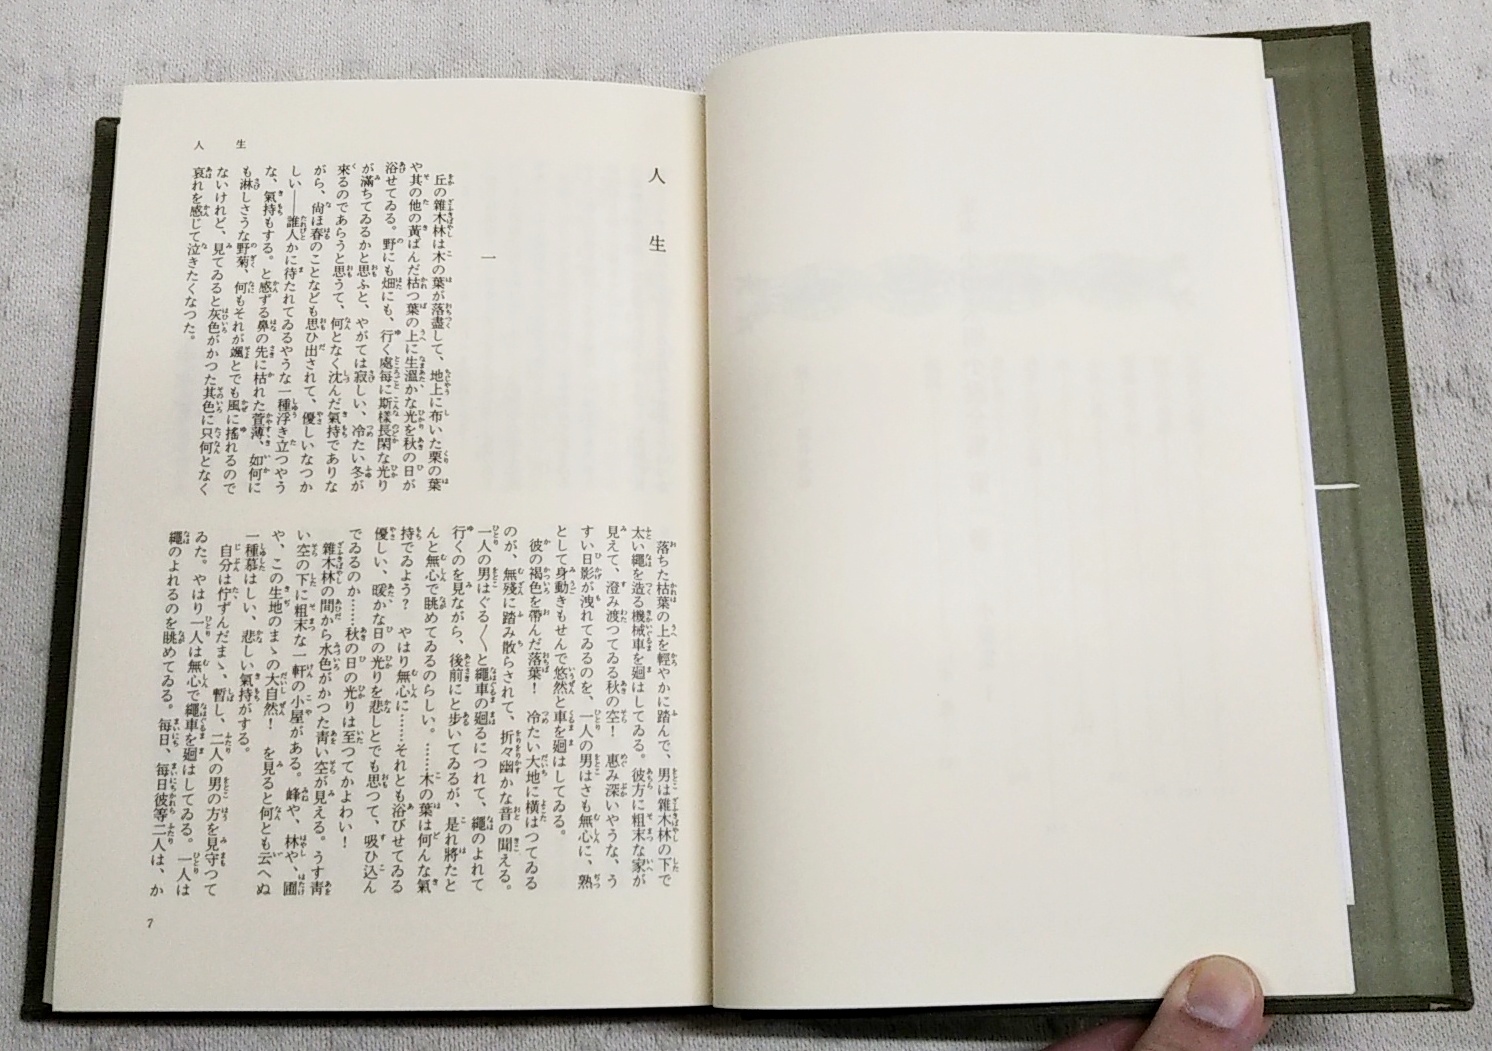 人生
人生
一
丘の雜木林は木の葉が落盡して、地上に布いた栗の葉
や其の他の黃ばんだ枯つ葉の上に生溫かな光を秋の日が
浴せてゐる。野にも畑にも、行く處每に斯樣長閑な光り
が滿ちてゐるかと思ふと、やがては寂しい、冷たい冬が
來るのであらうと思うて、何となく沈んだ氣持でありな
がら、尙ほ春のことなども思ひ出されて、優しいなつか
しい――誰人かに待たれてゐるやうな一種浮き立つやう
な、氣持もする。と感ずる鼻の先に枯れた萱薄、如何に
も淋しさうな野菊、何もそれが颯とでも風に搖れるので
ないけれど、見てゐると灰色がかつた其色に只何となく
哀れを感じて泣きたくなつた。
落ちた枯葉の上を輕やかに踏んで、男は雜木林の下で
太い繩を造る機械車を廻はしてゐる。彼方に粗末な家が
見えて、澄み渡つてゐる秋の空！　惠み深いやうな、う
すい日影が洩れてゐるのを、一人の男はさも無心に、熟
として身動きもせんで悠然と車を廻はしてゐる。
彼の褐色を帶んだ落葉！　冷たい大地に橫はつてゐる
のが、無殘に踏み散らされて、折々幽かな音の聞える。
一人の男はぐる〱と繩車の廻るにつれて、繩のよれて
行くのを見ながら、後前にと步いてゐるが、是れ將たと
んと無心で眺めてゐるのらしい。……木の葉は何んな氣
持でゐよう？　やはり無心に……それとも浴びせてゐる
優しい、暖かな日の光りを悲しとでも思つて、吸ひ込ん
でゐるのか……秋の日の光りは至つてかよわい！
雜木林の間から水色がかつた靑い空が見える。うす靑
い空の下に粗末な一軒の小屋がある。峰や、林や、圃
や、この生地のまゝの大自然！　を見ると何とも云へぬ
一種慕はしい、悲しい氣持がする。
自分は佇ずんだまゝ、暫し、二人の男の方を見守つて
ゐた。やはり一人は無心で繩車を廻はしてゐる。一人は
繩のよれるのを眺めてゐる。每日、每日彼等二人は、か
7